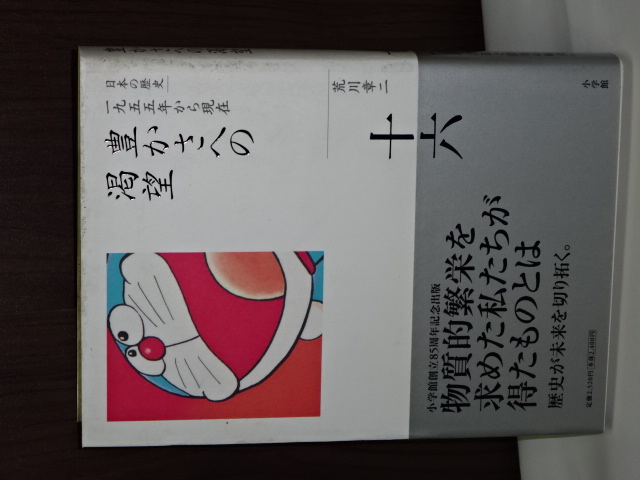 日本の歴史
一九五五年から現在
豊かさへの
渇望
荒川章二
十六
小学館
小学館創立85周年記念出版
物質的繁栄を
求めた私たちが
得たものとは
歴史が未来を切り拓く。